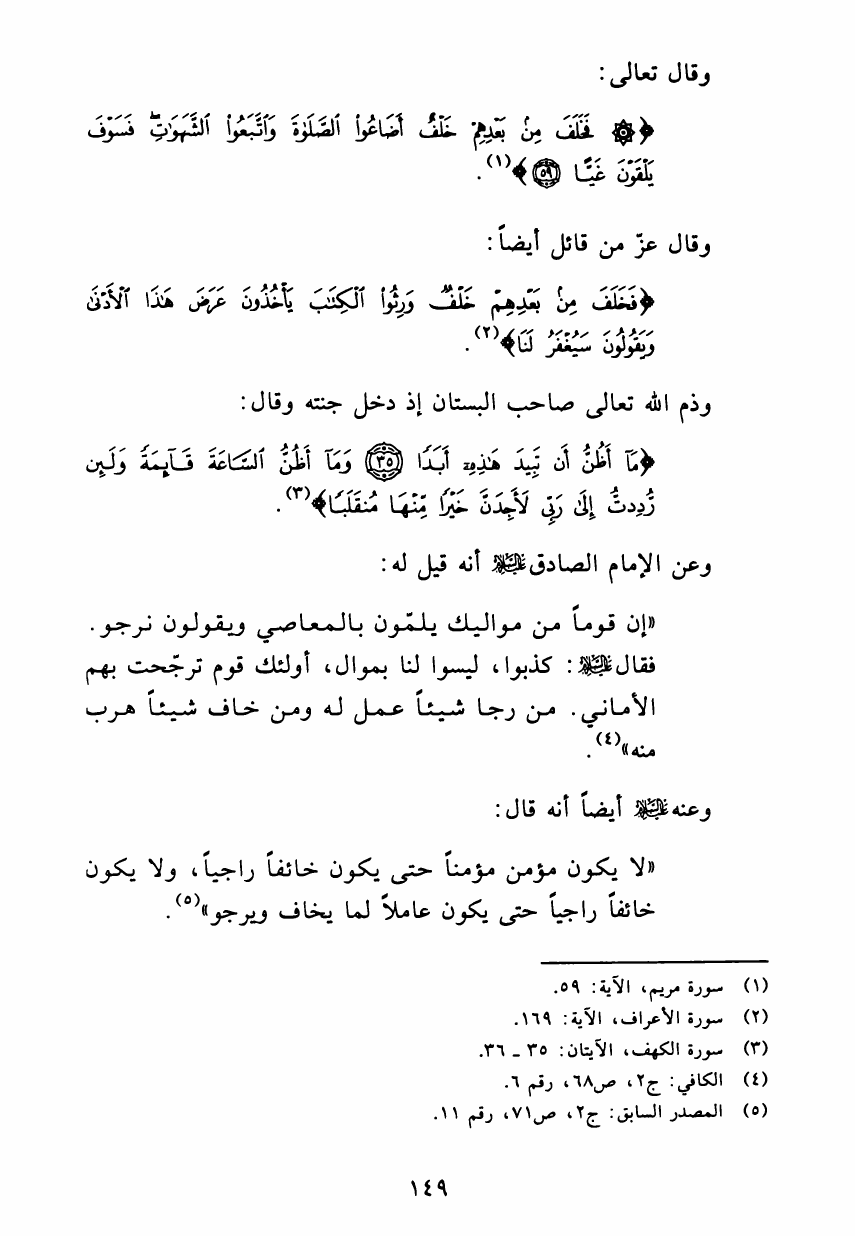 وقال تعالى:
﴿۞ فَخَلَفَ مِنۢ بَعْدِهِمْ خَلْفٌ أَضَاعُوا۟ ٱلصَّلَوٰةَ وَٱتَّبَعُوا۟ ٱلشَّهَوَٰتِ ۖ فَسَوْفَ
يَلْقَوْنَ غَيًّا ۝٥٩﴾(١).
وقال عزّ من قائل أيضاً:
﴿فَخَلَفَ مِنۢ بَعْدِهِمْ خَلْفٌ وَرِثُوا۟ ٱلْكِتَٰبَ يَأْخُذُونَ عَرَضَ هَٰذَا ٱلْأَدْنَىٰ
وَيَقُولُونَ سَيُغْفَرُ لَنَا﴾(٢).
وذم الله تعالى صاحب البستان إذ دخل جنته وقال:
﴿مَآ أَظُنُّ أَن تَبِيدَ هَٰذِهِۦٓ أَبَدًا ۝٣٥ وَمَآ أَظُنُّ ٱلسَّاعَةَ قَآئِمَةً وَلَئِن
رُّدِدتُّ إِلَىٰ رَبِّى لَأَجِدَنَّ خَيْرًا مِّنْهَا مُنقَلَبًا﴾(٣).
وعن الإمام الصادق عليه السلام أنه قيل له:
«إن قوماً من مواليك يلمّون بالمعاصي ويقولون نرجو.
فقال عليه السلام: كذبوا، ليسوا لنا بموال، أولئك قوم ترجّحت بهم
الأماني. من رجا شيئاً عمل له ومن خاف شيئاً هرب
منه»(٤).
وعنه عليه السلام أيضاً أنه قال:
«لا يكون مؤمن مؤمناً حتى يكون خائفاً راجياً، ولا يكون
خائفاً راجياً حتى يكون عاملاً لما يخاف ويرجو»(٥).
(١) سورة مريم، الآية: ٥٩.
(٢) سورة الأعراف، الآية: ١٦٩.
(٣) سورة الكهف، الآيتان: ٣٥ ـ ٣٦.
(٤) الكافي: ج٢، ص٦٨، رقم ٦.
(٥) المصدر السابق: ج٢، ص٧١، رقم ١١.
١٤٩